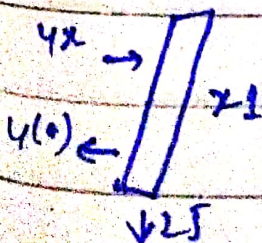 4x
x1
4(0)
25